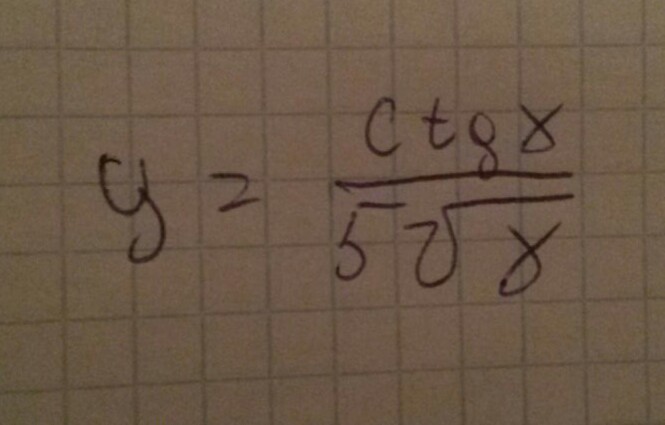 y = ctg x / 5√x